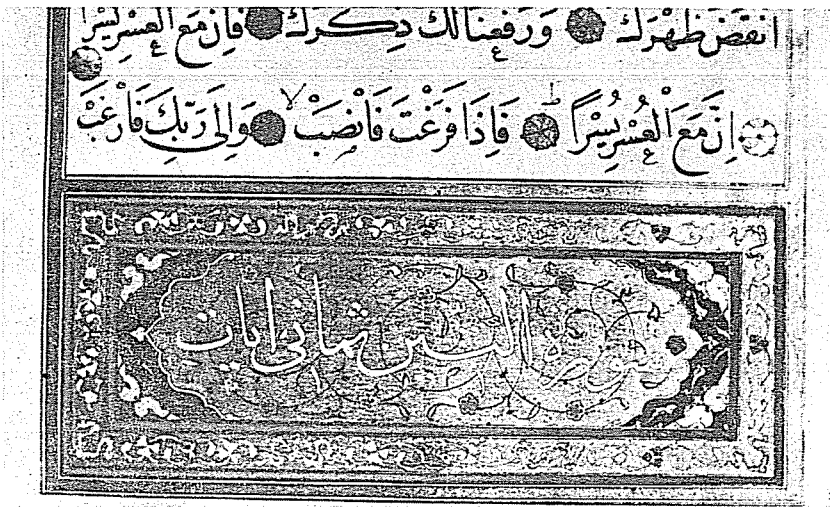 اَنْقَضَ ظَهْرَكَ وَرَفَعْنَا لَكَ ذِكْرَكَ فَاِنَّ مَعَ الْعُسْرِ يُسْرًا
اِنَّ مَعَ الْعُسْرِ يُسْرًا فَاِذَا فَرَغْتَ فَانْصَبْ وَاِلٰى رَبِّكَ فَارْغَبْ
سورة التين ثماني ايات